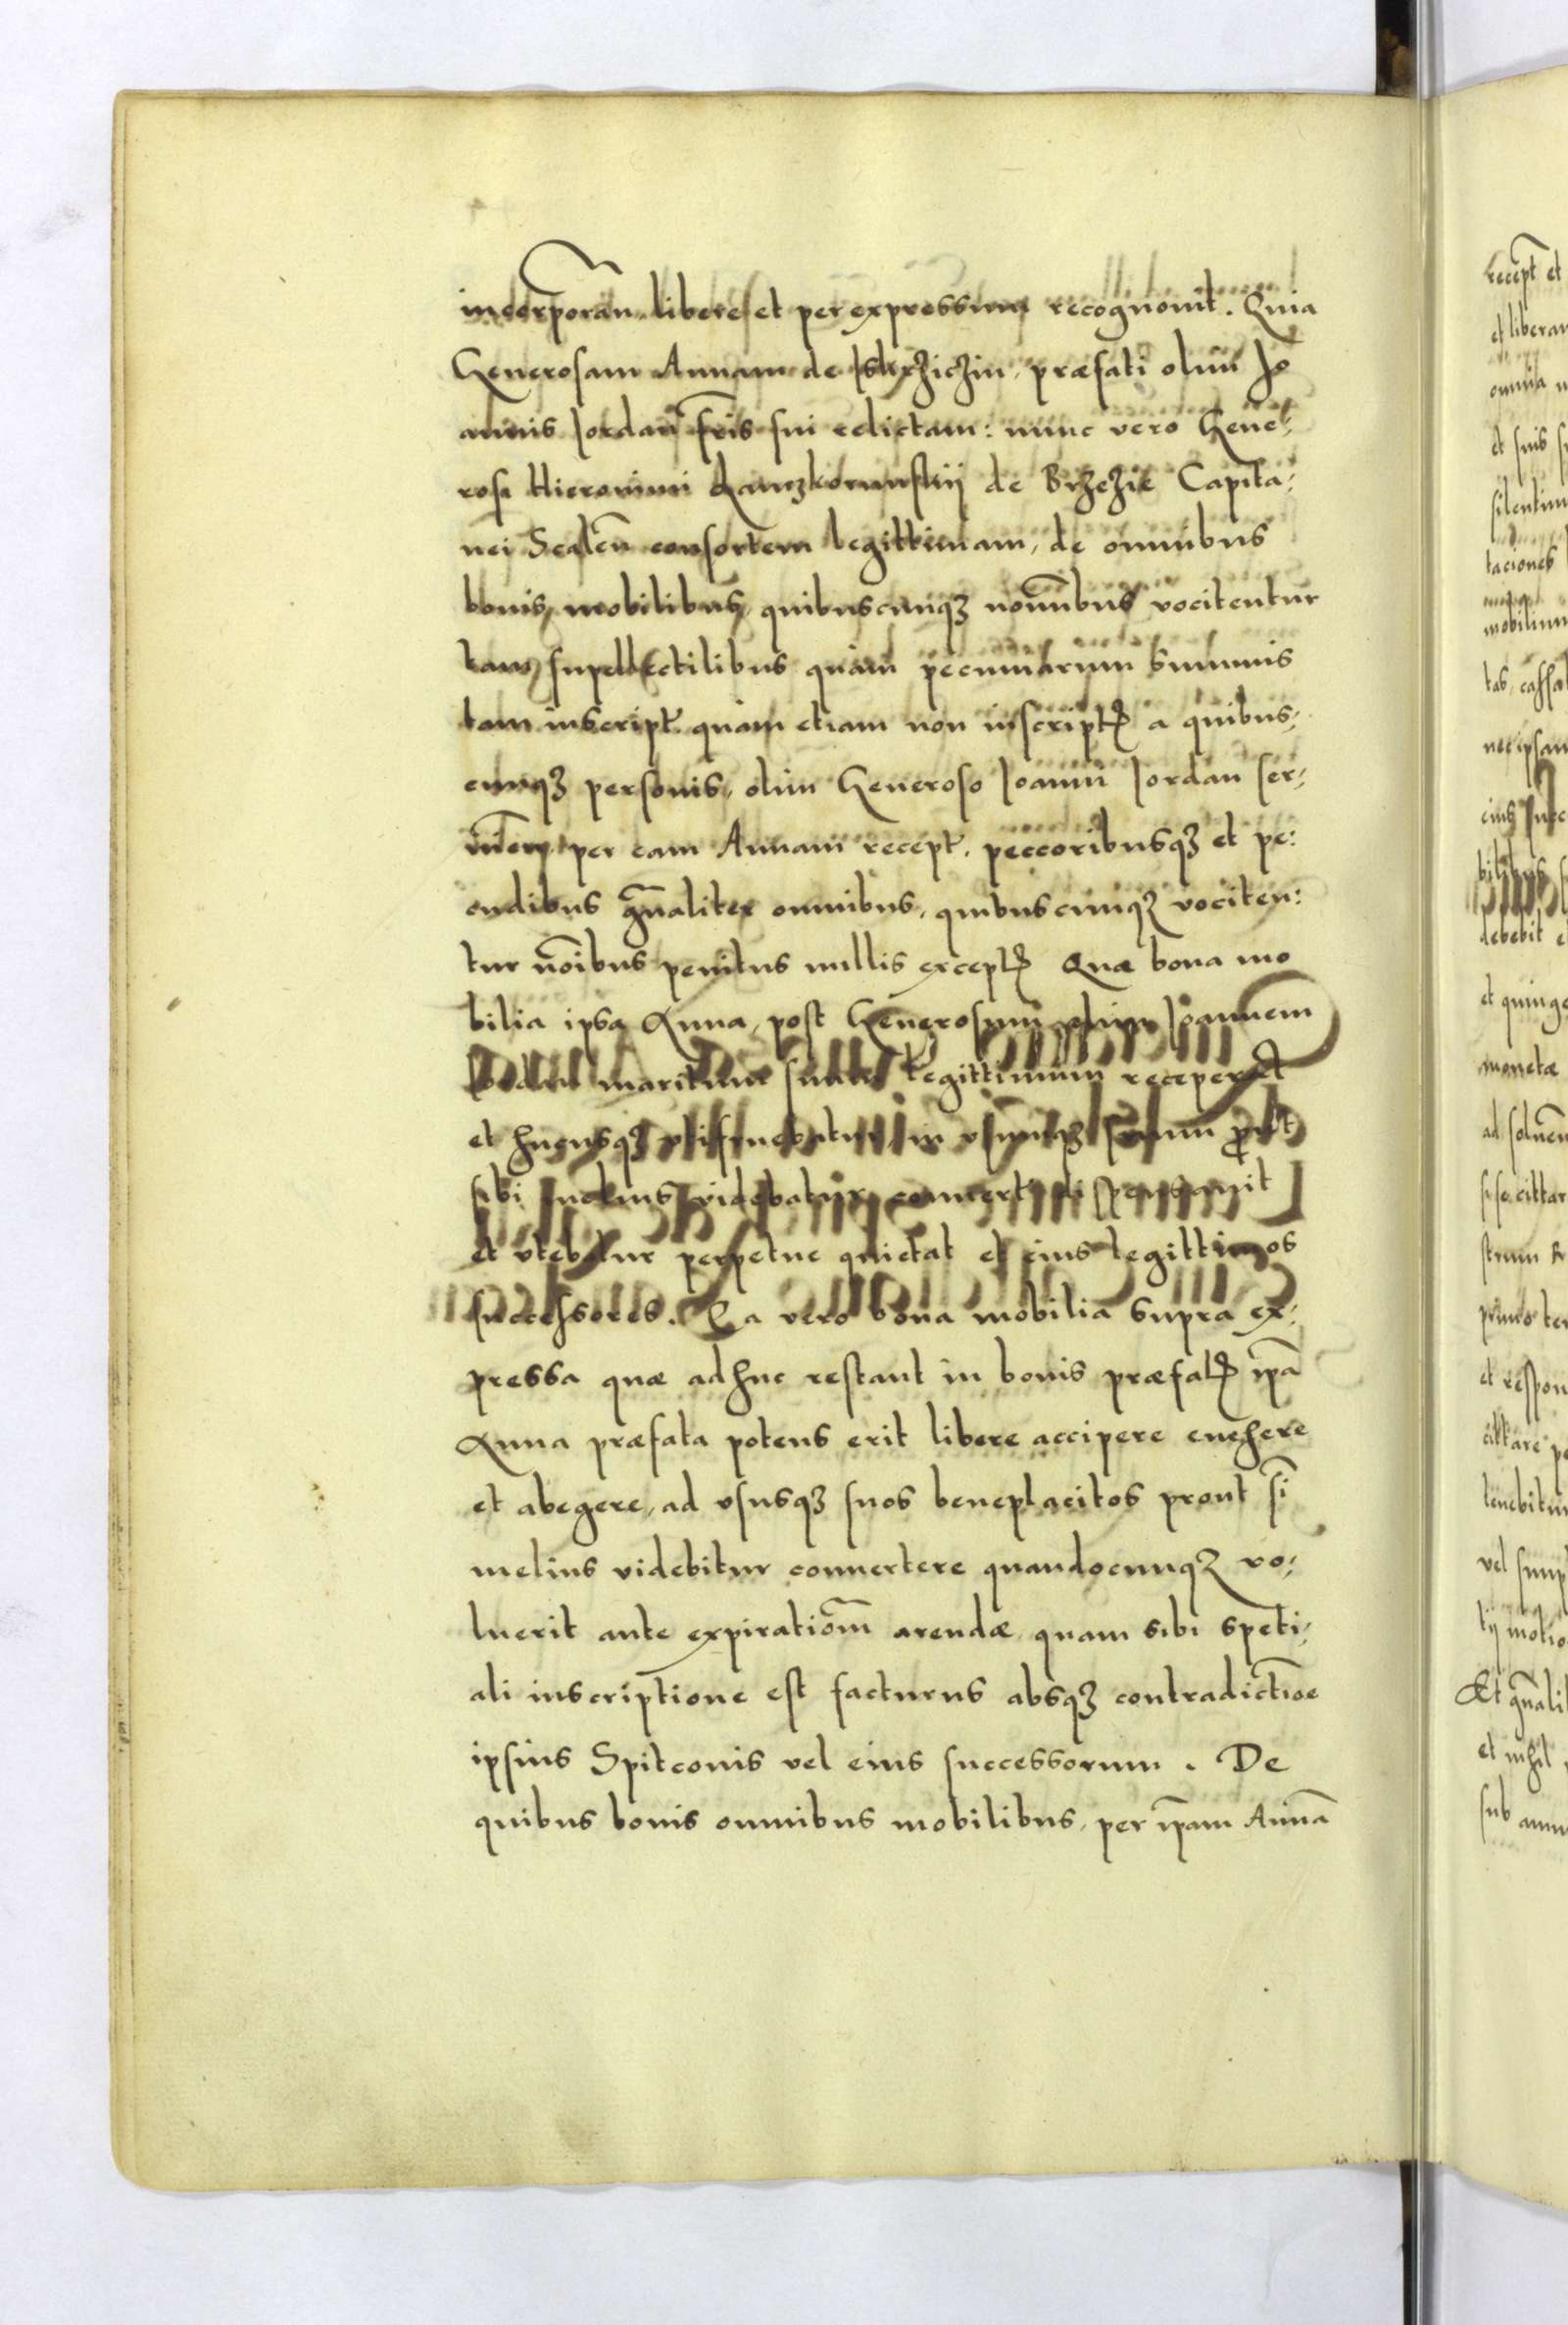 incorporan̄. libere et per expressum recognouit. Quia
Generosam Annam de Iskrziczin, præfati olim Jo
annis Jordan fr̃is sui relictam: nunc vero Gene:
rosi Hieronimi Lanczkorunskij de Brzezie Capita:
nei Scalen̄ consortem legittimam, de omnibus
bonis, mobilibus, quibuscunqꝫ nom̃ibus vocitentur
tam supellectilibus quàm pecuniarum summis
tam inscript̃. quàm etiam non inscriptꝭ a quibus:
cunqꝫ personis, olim Generoso Joanni Jordan ser:
per eam Annam recept̃. peccoribusqꝫ et pe:
cudibus gñaliter omnibus, quibuscunqꝫ vociten:
tur nõibus penitus nullis exceptꝭ Quæ bona mo
bilia ipsa Anna, post Generosum olim Joannem
Jordan maritum suum legittimum receperat
et hucusqꝫ vtifruebatur, in vsumqꝫ suum prout
sibi melius videbatur conuertit dispensauit
et vtebatur perpetue quietat et eius legittimos
successores. Ea vero bona mobilia supra ex:
pressa quæ adhuc restant in bonis præfatꝭ ip̃a
Anna præfata potens erit libere accipere euehere
et abegere, ad vsusqꝫ suos beneplacitos prout s̃i
melius videbitur conuertere quandocunqꝫ vo:
luerit ante expiratiom̃ arendæ, quam sibi speti:
ali inscriptione est facturus absqꝫ contradictiõe
ipsius Spitconis vel eius successorum. De
quibus bonis omnibus mobilibus, per ip̃am Annã
recept̃ et
et liberam
omnia
et suis
taciones
mobilium
nec ipsam
debebit
monetæ
primo
et respon
tenebitur
vel
Et gñali
et nihil
sub